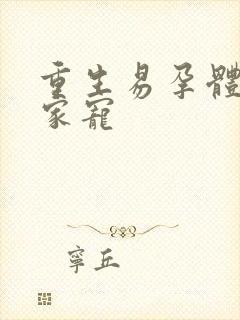 重生易孕體
家寵
寧丘